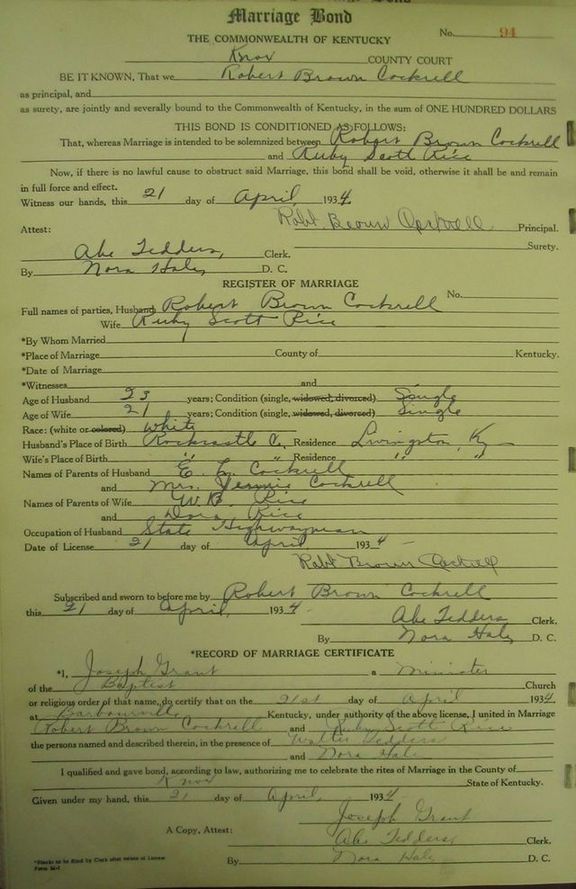 Marriage Bond
No. 94
THE COMMONWEALTH OF KENTUCKY
Knox COUNTY COURT
BE IT KNOWN, That we Robert Brown Cockrell
as principal, and
as surety, are jointly and severally bound to the Commonwealth of Kentucky, in the sum of ONE HUNDRED DOLLARS
THIS BOND IS CONDITIONED AS FOLLOWS:
That, whereas Marriage is intended to be solemnized between Robert Brown Cockrell
and Ruby Scott Rice
Now, if there is no lawful cause to obstruct said Marriage, this bond shall be void, otherwise it shall be and remain
in full force and effect.
Witness our hands, this 21 day of April, 1934.
Robt Brown Cockrell Principal.
Attest: Surety.
Abe Tedders, Clerk.
By Nora Hale, D. C.
REGISTER OF MARRIAGE
No.
Full names of parties, Husband Robert Brown Cockrell
Wife Ruby Scott Rice
*By Whom Married
*Place of Marriage County of Kentucky.
*Date of Marriage
*Witnesses and
Age of Husband 23 years; Condition (single, widowed, divorced) Single
Age of Wife 21 years; Condition (single, widowed, divorced) Single
Race: (white or colored) White
Husband's Place of Birth Rockcastle Co, Residence Livingston, Ky
Wife's Place of Birth " " Residence " "
Names of Parents of Husband E. L. Cockrell
and Mrs. Jennie Cockrell
Names of Parents of Wife W.B. Rice
and Dora Rice
Occupation of Husband State Highwayman
Date of License 21 day of April, 1934 -
Robt Brown Cockrell
Subscribed and sworn to before me by Robert Brown Cockrell
this 21 day of April, 1934.
Abe Tedders Clerk,
By Nora Hale, D. C.
*RECORD OF MARRIAGE CERTIFICATE
*I, Joseph Grant a Minister
of the Baptist Church
or religious order of that name, do certify that on the 21st day of April 1934
at Barbourville Kentucky, under authority of the above license, I united in Marriage
Robert Brown Cockrell and Ruby Scott Rice
the persons named and described therein, in the presence of Walter Tedders
and Nora Hale
I qualified and gave bond, according to law, authorizing me to celebrate the rites of Marriage in the County of
Knox State of Kentucky.
Given under my hand, this 21 day of April, 1934
Joseph Grant
A Copy, Attest: Abe Tedders, Clerk,
By Nora Hale D. C.
*Blanks to be filled by Clerk after return of License